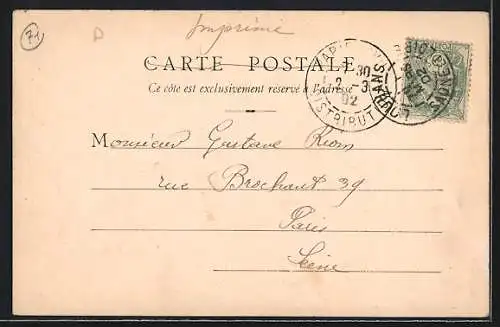 71
D
Imprimé
CARTE POSTALE
Ce côté est exclusivement réservé à l'adresse
PARIS
7 30
2 - 3
02
DISTRIBUTION
LOUHANS
SAÔNE-ET-LOIRE
Monsieur Gustave Riom
rue Brochant 39
Paris
Seine